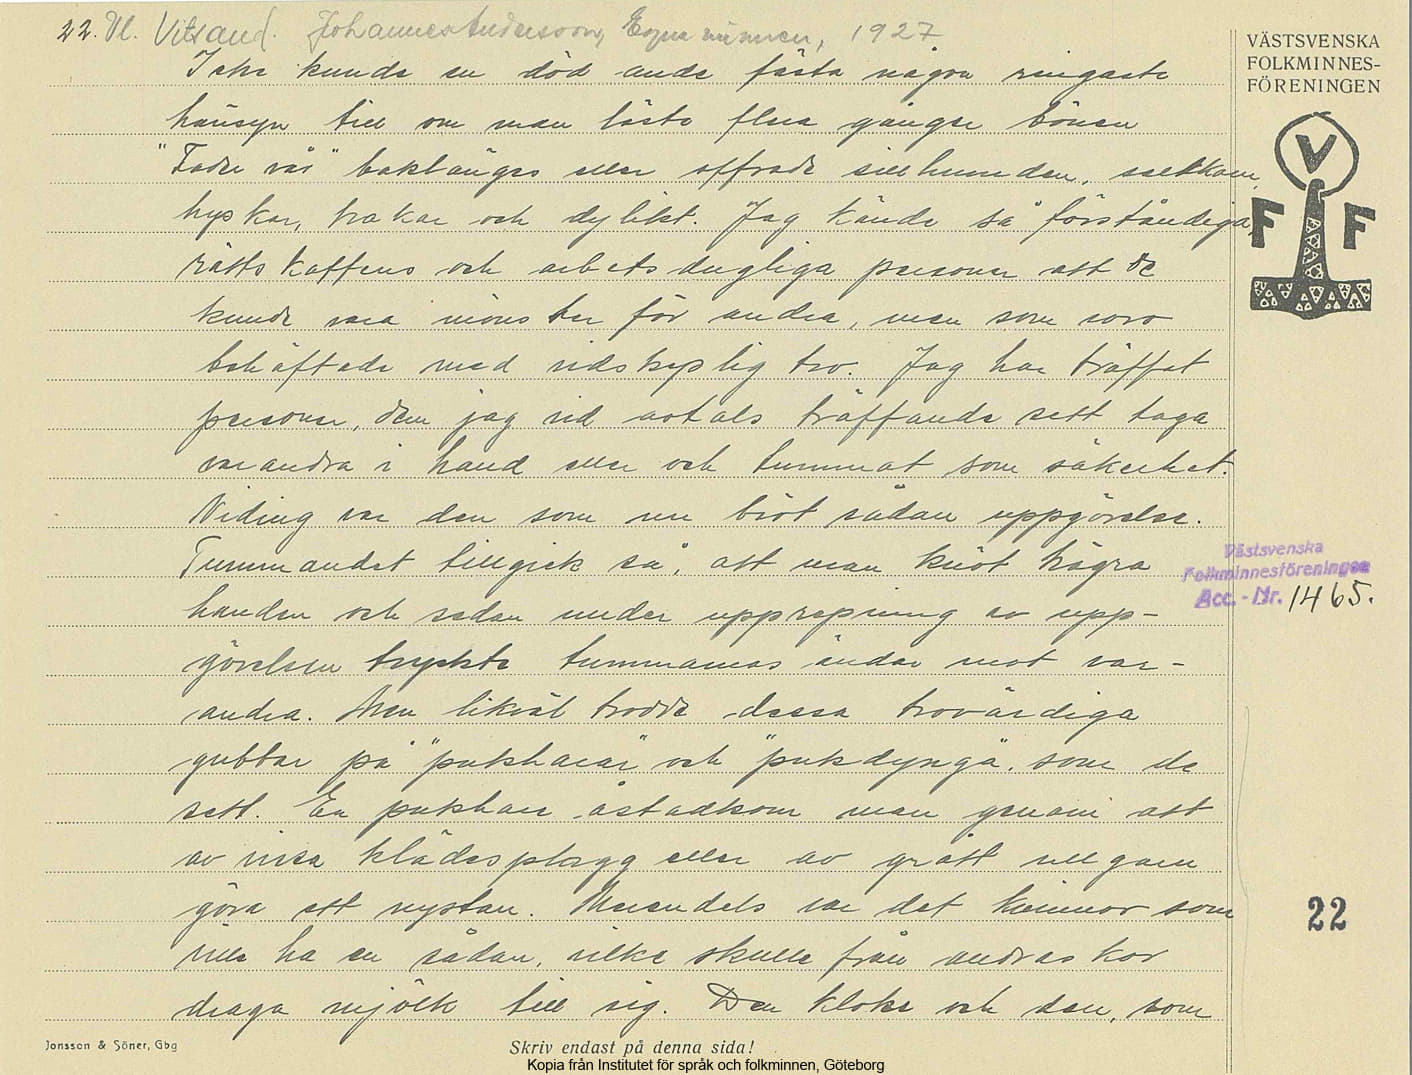 22. Vl. Vitsand. Johannes Andersson, Egna minnen, 1927
VÄSTSVENSKA
FOLKMINNES-
FÖRENINGEN
V
F F
Icke kunde en död ande fästa någon ringaste
hänsyn till om man läste flera gånger bönen
"Fader vår" baklänges eller offrade
hyskor, hakar och dylikt. Jag kände så förståndiga,
rättskaffens och arbetsdugliga personer att de
kunde vara mönster för andra, men som voro
behäftade med vidskeplig tro. Jag har träffat
personer, dem jag vid avtals träffande sett taga
varandra i hand eller och tummat som säkerhet.
Niding var den som nu bröt sådan uppgörelse.
Tummandet tillgick så, att man knöt högra
handen och sedan under upprepning av upp-
görelsen tryckte tummarnas ändar mot var-
andra. Men likväl trodde dessa trovärdiga
gubbar på "pukharar" och "pukdynga", som de
sett. En pukhare åstadkom man genom att
av vissa klädesplagg eller av grått ullgarn
göra ett nystan. Merendels var det kvinnor som
ville ha en sådan, vilke skulle från andras kor
draga mjölk till sig. Den kloke och den, som
Västsvenska
Folkminnesföreningen
Acc. - Nr. 1465.
22
Jonsson & Söner, Gbg
Skriv endast på denna sida!
Kopia från Institutet för språk och folkminnen, Göteborg